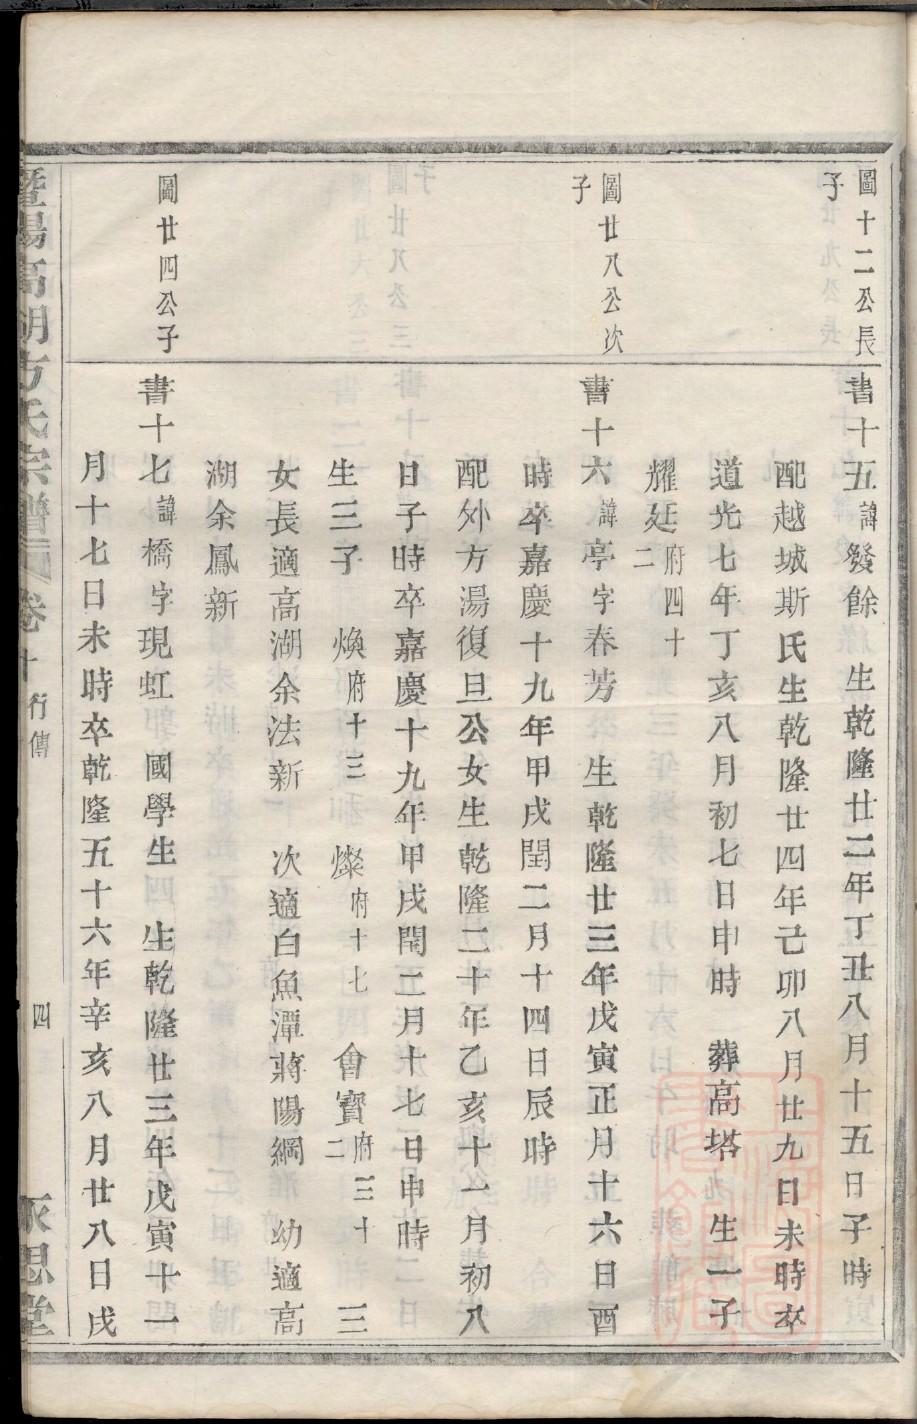 圖十二公長
子
書十五諱發餘 生乾隆廿二年丁丑八月十五日子時
配越城斯氏生乾隆廿四年己卯八月廿九日未時卒
道光七年丁亥八月初七日申時 葬高塔 生一子
耀廷府四十
二
圖廿八公次
子
書十六諱亭字春芳 生乾隆廿三年戊寅正月十六日酉
時卒嘉慶十九年甲戌閏二月十四日辰時
配外方湯復旦公女生乾隆二十年乙亥十一月初八
日子時卒嘉慶十九年甲戌閏二月十七日申時
生三子 煥府十三 燦府十七 會寶府三十二 三
女長適高湖余法新 次適白魚潭蔣陽綱 幼適高
湖余鳳新
圖廿四公子
書十七諱橋字現虹 國學生 生乾隆廿三年戊寅十一
月十七日未時卒乾隆五十六年辛亥八月廿八日戌
暨陽高湖方氏宗譜 卷十 行傳 四 永思堂